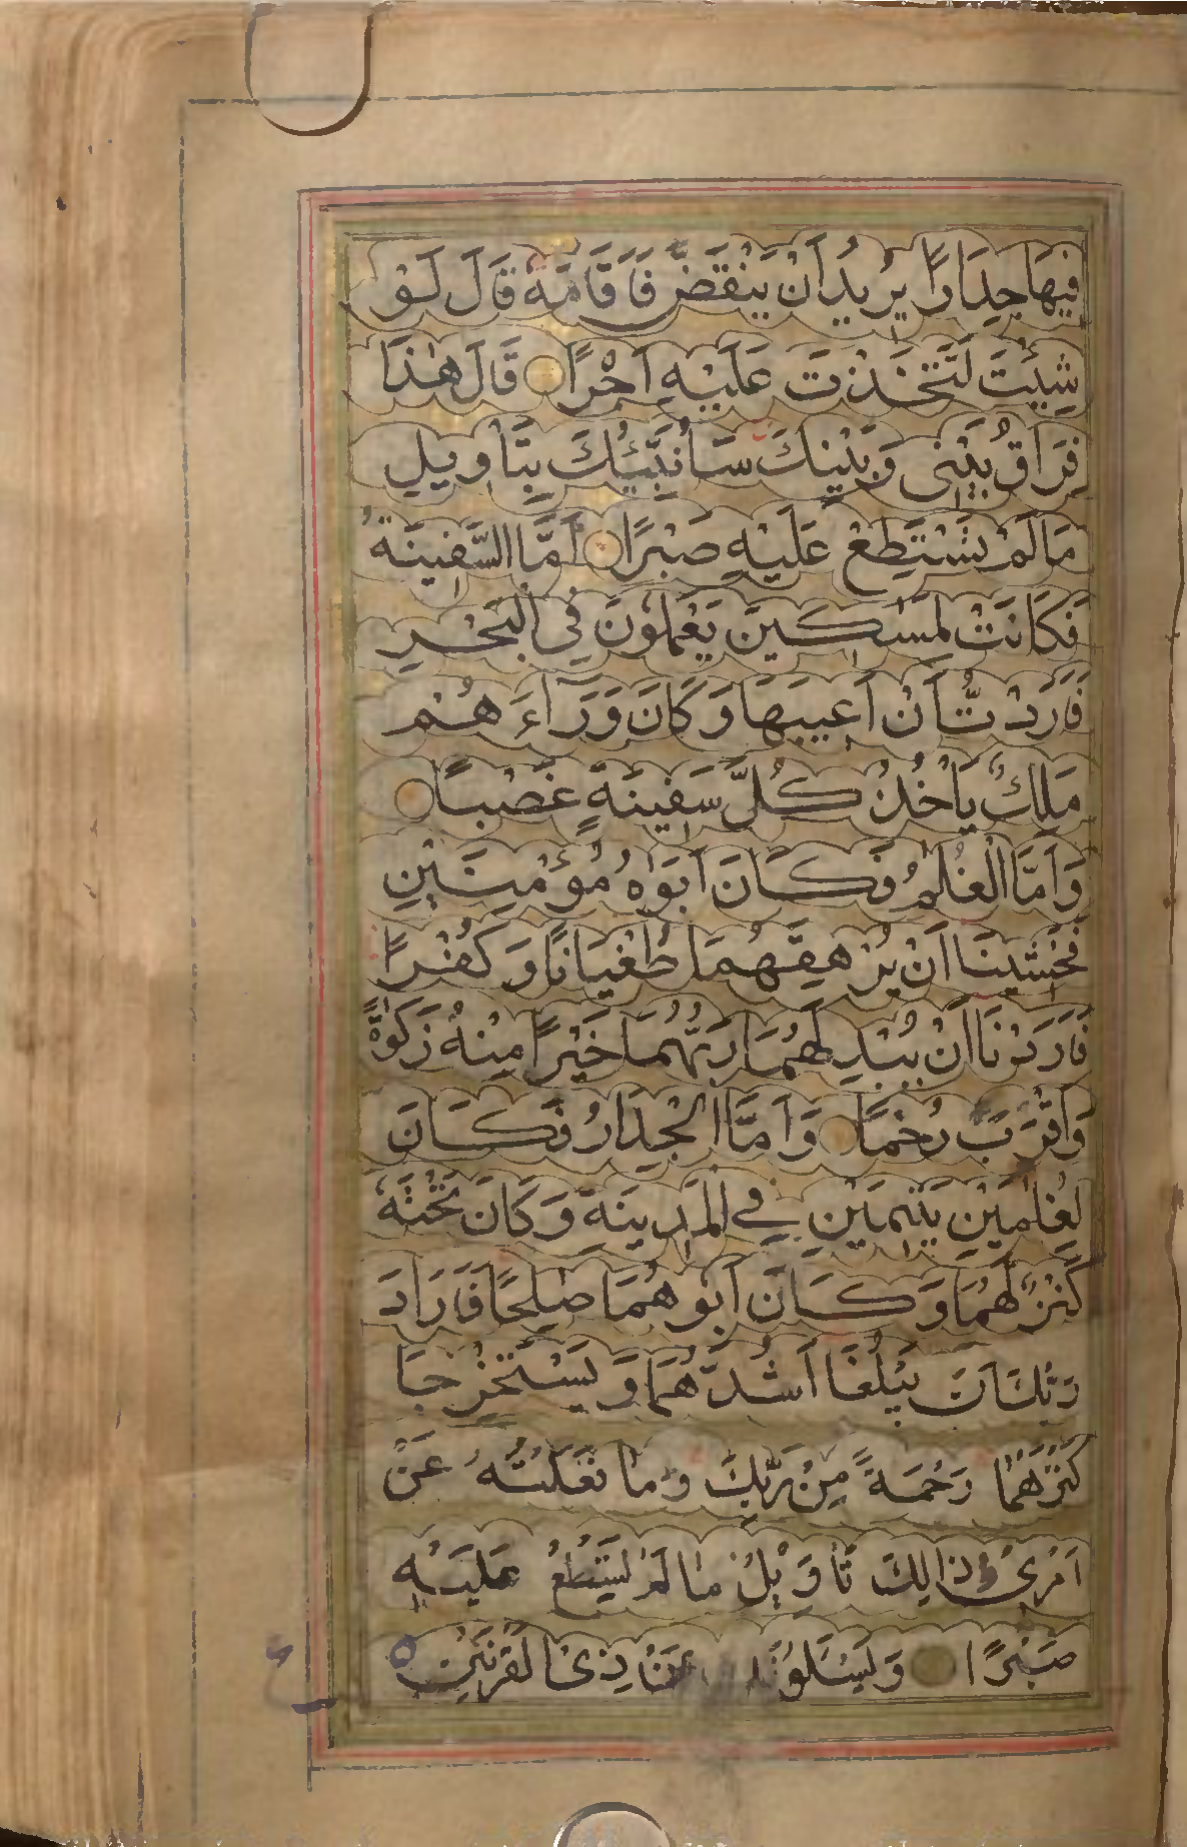 فِيهَا جِدَارًا يُرِيدُ اَنْ يَنْقَضَّ فَاَقَامَهٗ قَالَ لَوْ
شِئْتَ لَتَّخَذْتَ عَلَيْهِ اَجْرًا قَالَ هٰذَا
فِرَاقُ بَيْنِى وَبَيْنِكَ سَاُنَبِّئُكَ بِتَاْوِيلِ
مَا لَمْ تَسْتَطِعْ عَلَيْهِ صَبْرًا اَمَّا السَّفِينَةُ
فَكَانَتْ لِمَسٰكِينَ يَعْمَلُونَ فِي الْبَحْرِ
فَاَرَدْتُّ اَنْ اَعِيبَهَا وَكَانَ وَرَآءَهُمْ
مَلِكٌ يَاْخُذُ كُلَّ سَفِينَةٍ غَصْبًا
وَاَمَّا الْغُلٰمُ فَكَانَ اَبَوٰهُ مُؤْمِنَيْنِ
فَخَشِينَا اَنْ يُرْهِقَهُمَا طُغْيَانًا وَكُفْرًا
فَاَرَدْنَا اَنْ يُبْدِلَهُمَا رَبُّهُمَا خَيْرًا مِنْهُ زَكٰوةً
وَاَقْرَبَ رُحْمًا وَاَمَّا الْجِدَارُ فَكَانَ
لِغُلٰمَيْنِ يَتِيمَيْنِ فِي الْمَدِينَةِ وَكَانَ تَحْتَهٗ
كَنْزٌ لَهُمَا وَكَانَ اَبُوهُمَا صٰلِحًا فَاَرَادَ
رَبُّكَ اَنْ يَبْلُغَا اَشُدَّهُمَا وَيَسْتَخْرِجَا
كَنْزَهُمَا رَحْمَةً مِنْ رَبِّكَ وَمَا فَعَلْتُهُ عَنْ
اَمْرِى ذَالِكَ تَاْوِيلُ مَا لَمْ تَسْطِعْ عَلَيْهِ
صَبْرًا وَيَسْئَلُونَكَ عَنْ ذِى الْقَرْنَيْنِ